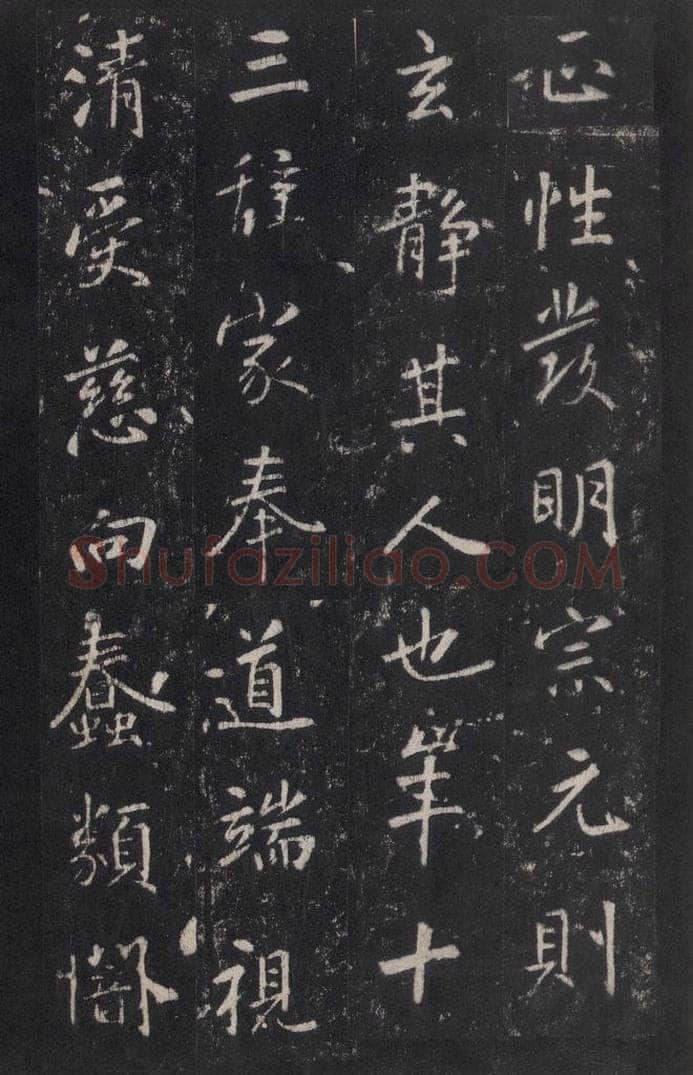 正性發明宗元則
玄靜其人也年十
三辞家奉道端視
清受慈向蠢類
Shufaziliao.COM